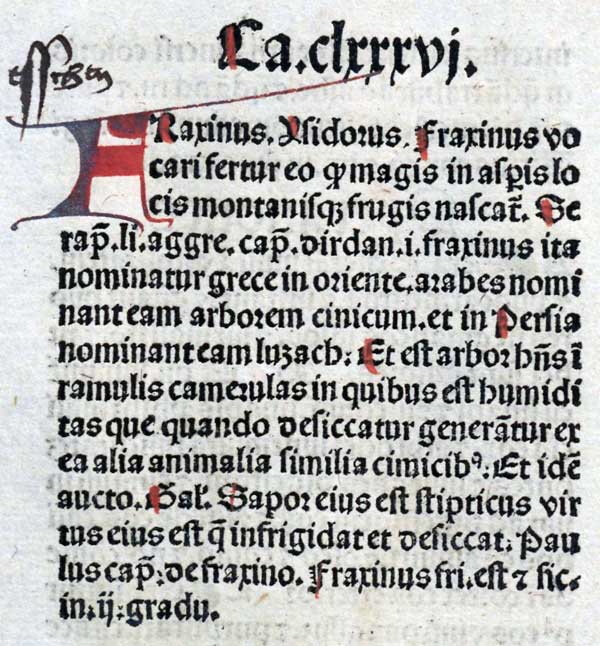 Ca.clxxxvj.
FRaxinus. Ysidorus. Fraxinus vo
cari fertur eo ꝙ magis in aspis lo
cis montanisqꝫ frugis nascat̄. Se
rap̄. li. aggre. cap̄. dirdan. i. fraxinus ita
nominatur grece in oriente. arabes nomi
nant eam arborem cinicum. et in Persia
nominant eam luzach: Et est arbor hn̄s ī
ramulis camerulas in quibus est humidi
tas que quando desiccatur generātur ex
ea alia animalia similia cimicibꝰ: Et idē
aucto. Gal. Sapor eius est stipticus vir
tus eius est q̄ infrigidat et desiccat: Pau
lus cap̄: de fraxino. Fraxinus fri. est ⁊ sic.
in. ij: gradu.